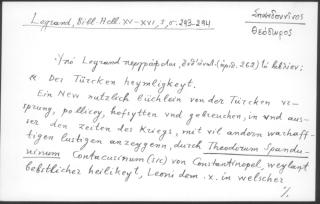 Legrand, Bibl. Hell. XV–XVI, 3, σ. 293–294.
Σπανδουνῖνος
Θεόδωρος
Ὑπὸ Legrand περιγράφεται, (ἀριθ. 262) τὸ
Der Türcken heymligkeyt.
Ein New nutzlich büchlein von der Türcken vr-
sprung, pollicey, hofsytten vnd gebreuchen, in vnd aus-
ser den zeiten des Kriegs, mit vil andern warhaff-
tigen lustigen anzeygenn, durch Theodorum Spandu-
ninum Contacusinum (sic) von Constantinopel, weylant
bebstlicher heiligkeyt, Leoni dem .x. in welscher
%.